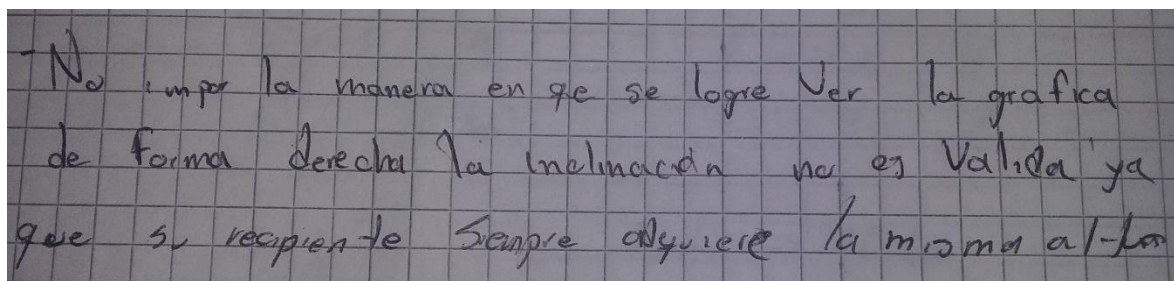 - No impor la manera en qe se logre Ver la grafica
de forma derecha la inclinación no es Valida ya
que su recipiente Siempre adquiere la misma alta